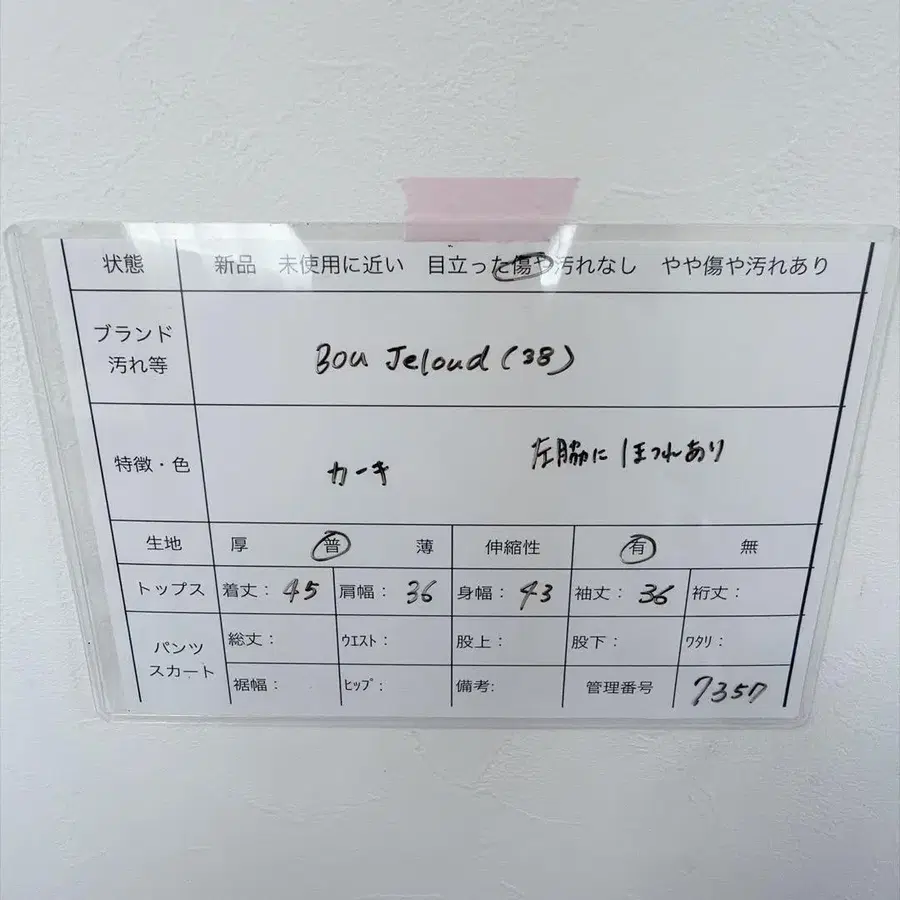 状態 新品 未使用に近い 目立った傷や汚れなし やや傷や汚れあり
ブランド
汚れ等
Bou Jeloud (38)
特徴・色
カーキ
左脇に ほつれあり
生地 厚 普 薄 伸縮性 有 無
トップス 着丈： 45 肩幅： 36 身幅： 43 袖丈： 36 裄丈：
パンツ
スカート
総丈： ｳｴｽﾄ： 股上： 股下： ﾜﾀﾘ：
裾幅： ﾋｯﾌﾟ： 備考: 管理番号 7357